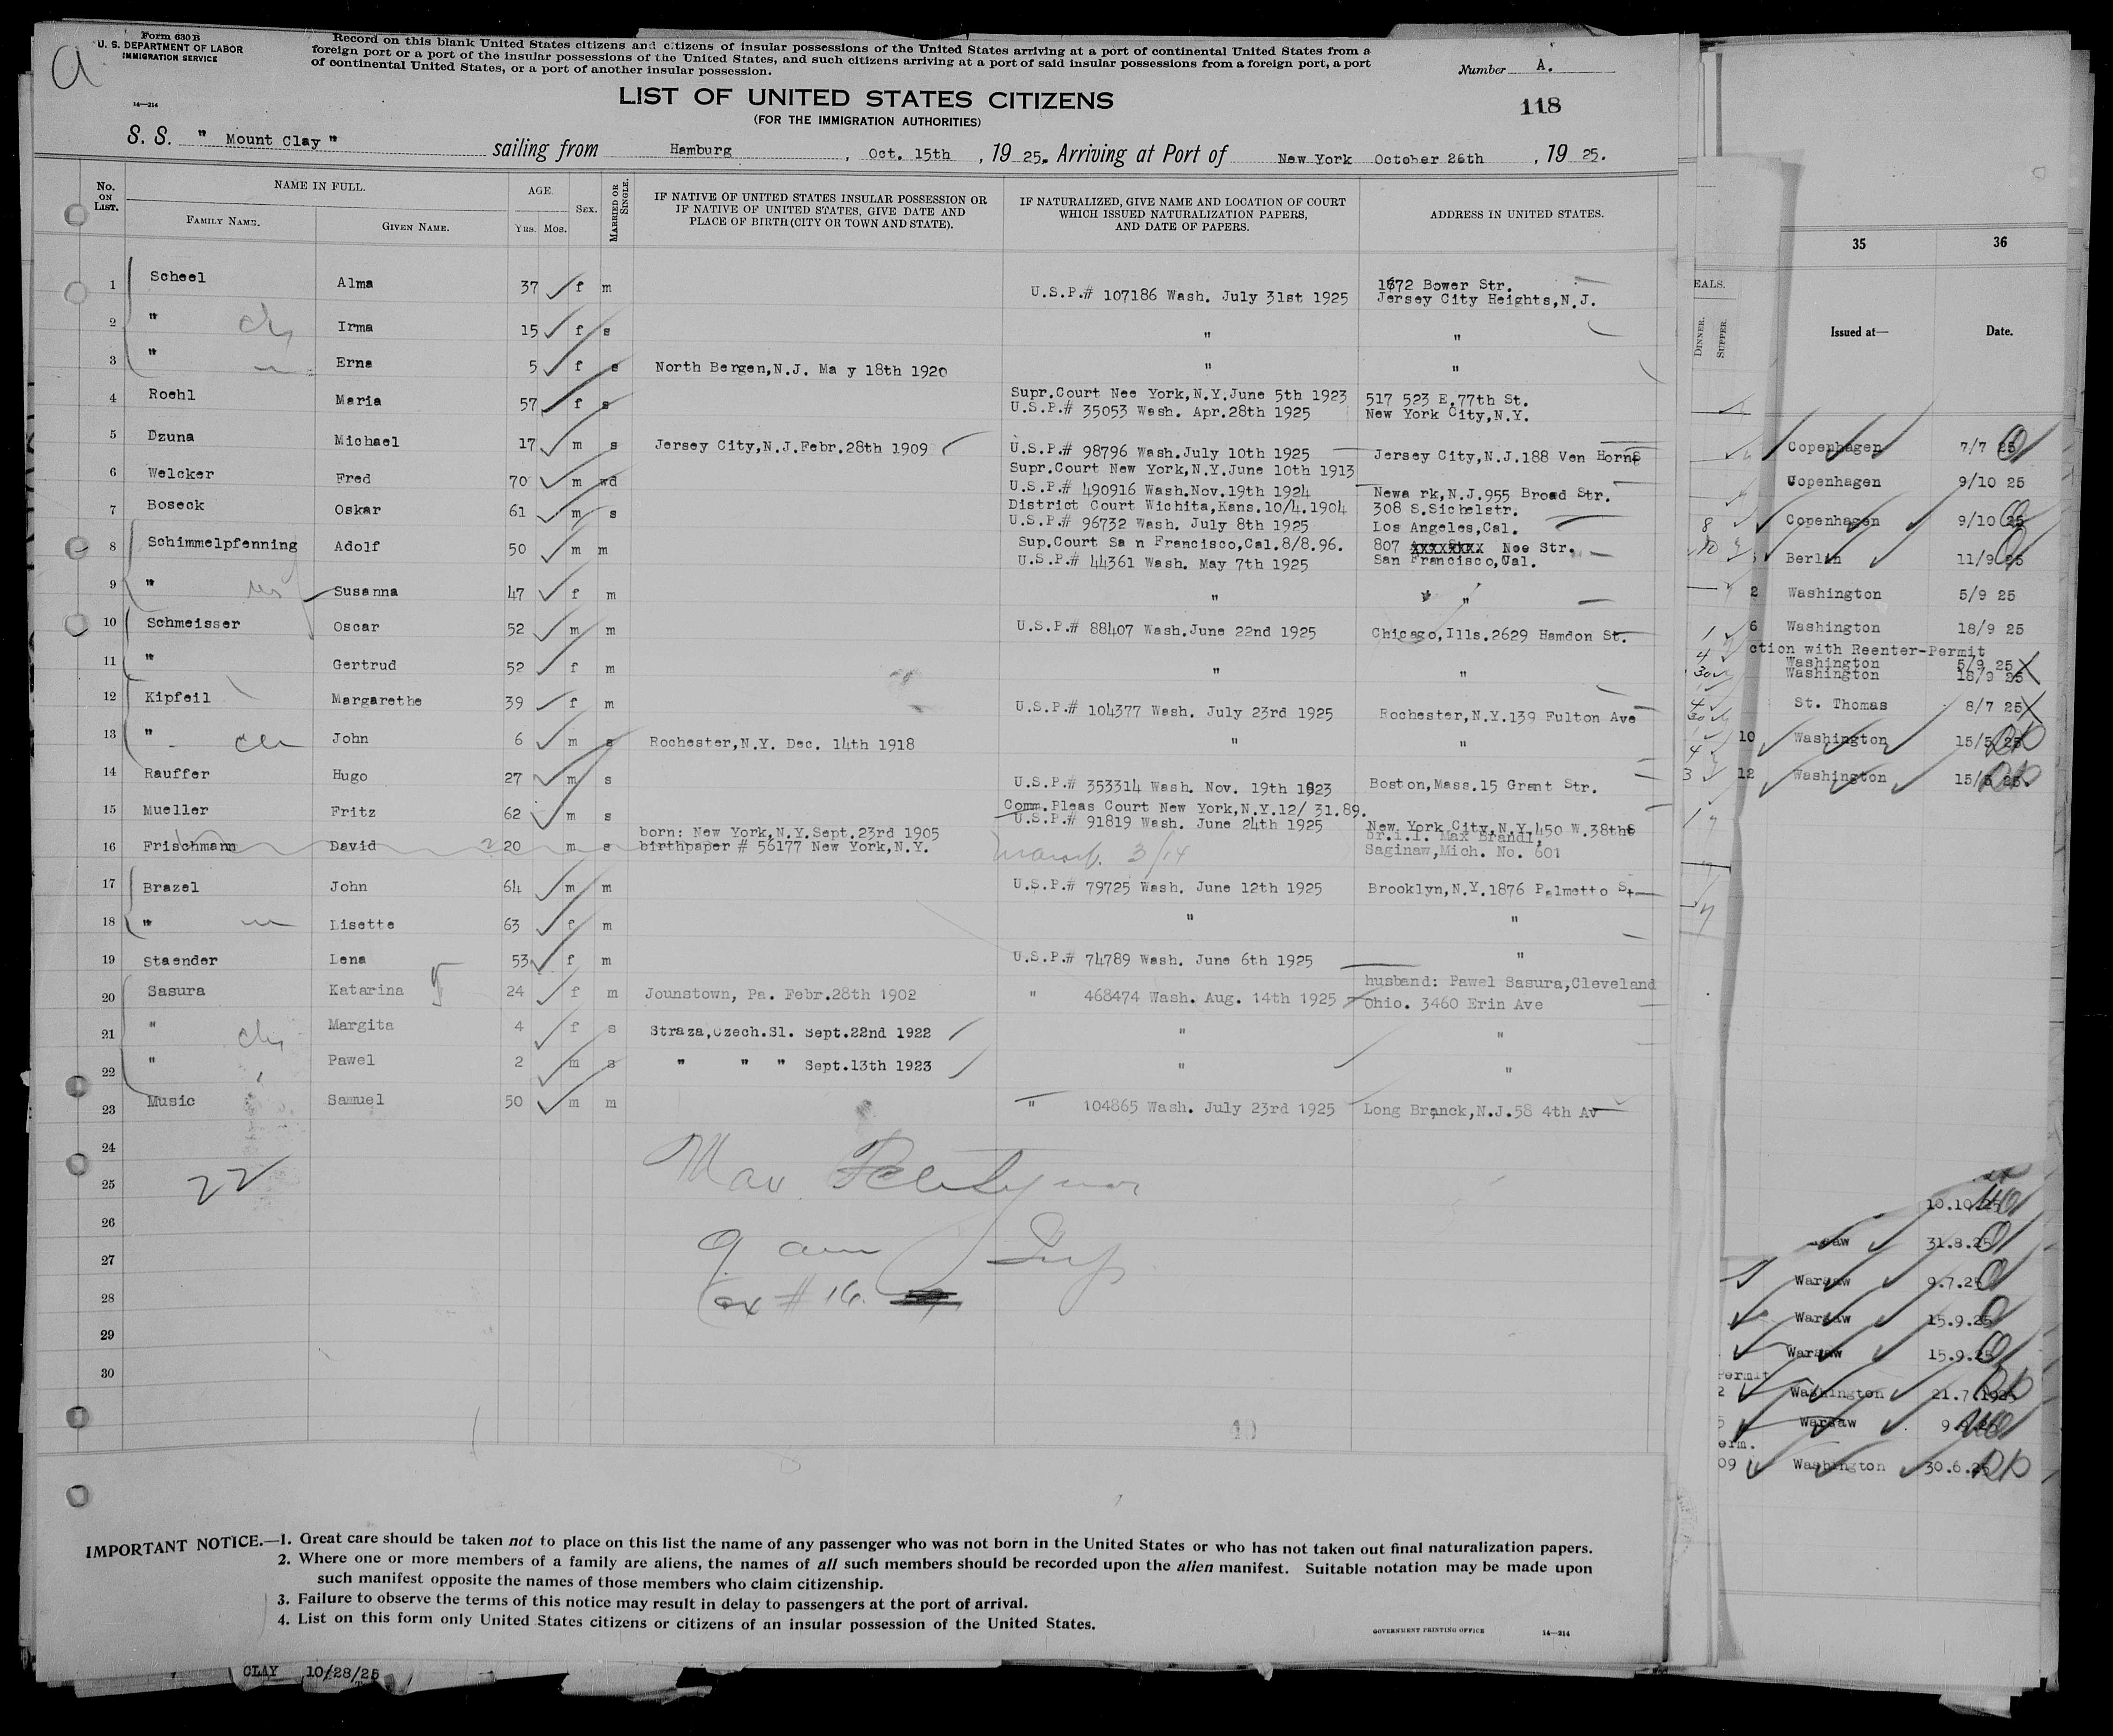 Form 630 B
U. S. DEPARTMENT OF LABOR
IMMIGRATION SERVICE
14—214
a
Record on this blank United States citizens and citizens of insular possessions of the United States arriving at a port of continental United States from a
foreign port or a port of the insular possessions of the United States, and such citizens arriving at a port of said insular possessions from a foreign port, a port
of continental United States, or a port of another insular possession.
Number A.
118
LIST OF UNITED STATES CITIZENS
(FOR THE IMMIGRATION AUTHORITIES)
S. S. " Mount Clay " sailing from Hamburg , Oct. 15th , 19 25. Arriving at Port of New York October 26th , 19 25.
No. ON LIST.
NAME IN FULL.
FAMILY NAME.
GIVEN NAME.
AGE.
YRS. MOS.
SEX.
MARRIED OR SINGLE.
IF NATIVE OF UNITED STATES INSULAR POSSESSION OR
IF NATIVE OF UNITED STATES, GIVE DATE AND
PLACE OF BIRTH (CITY OR TOWN AND STATE).
IF NATURALIZED, GIVE NAME AND LOCATION OF COURT
WHICH ISSUED NATURALIZATION PAPERS,
AND DATE OF PAPERS.
ADDRESS IN UNITED STATES.
1 Scheel Alma 37 f m U.S.P.# 107186 Wash. July 31st 1925 1672 Bower Str.
Jersey City Heights,N.J.
2 " Irma 15 f s " "
3 " Erna 5 f s North Bergen,N.J. Ma y 18th 1920 " "
4 Roehl Maria 57 f s Supr.Court Nee York,N.Y.June 5th 1923 517 523 E.77th St.
U.S.P.# 35053 Wash. Apr.28th 1925 New York City,N.Y.
5 Dzuna Michael 17 m s Jersey City,N.J.Febr.28th 1909 U.S.P.# 98796 Wash.July 10th 1925 Jersey City,N.J.188 Ven Horns
6 Welcker Fred 70 m wd Supr.Court New York,N.Y.June 10th 1913
U.S.P.# 490916 Wash.Nov.19th 1924 Newa rk,N.J.955 Broad Str.
7 Boseck Oskar 61 m s District Court Wichita,Kans.10/4.1904 308 S.Sichelstr.
U.S.P.# 96732 Wash. July 8th 1925 Los Angeles,Cal.
8 Schimmelpfenning Adolf 50 m m Sup.Court Sa n Francisco,Cal.8/8.96. 807 Noe Str.
U.S.P.# 44361 Wash. May 7th 1925 San Francisco,Cal.
9 " Susanna 47 f m " "
10 Schmeisser Oscar 52 m m U.S.P.# 88407 Wash.June 22nd 1925 Chicago,Ills.2629 Hamdon St.
11 " Gertrud 52 f m " "
12 Kipfeil Margarethe 39 f m U.S.P.# 104377 Wash. July 23rd 1925 Rochester,N.Y.139 Fulton Ave
13 " John 6 m s Rochester,N.Y. Dec. 14th 1918 " "
14 Rauffer Hugo 27 m s U.S.P.# 353314 Wash. Nov. 19th 1923 Boston,Mass.15 Grant Str.
15 Mueller Fritz 62 m s Comm.Pleas Court New York,N.Y.12/ 31.89.
U.S.P.# 91819 Wash. June 24th 1925 New York City,N.Y.450 W.38thS
16 Frischmann David 20 m s born: New York,N.Y.Sept.23rd 1905
birthpaper # 56177 New York,N.Y. 3/14 br.i.l. Max Brandl,
Saginaw,Mich. No. 601
17 Brazel John 64 m m U.S.P.# 79725 Wash. June 12th 1925 Brooklyn,N.Y.1876 Palmetto St
18 " Lisette 63 f m " "
19 Staender Lena 53 f m U.S.P.# 74789 Wash. June 6th 1925 "
20 Sasura Katarina 24 f m Jounstown, Pa. Febr.28th 1902 " 468474 Wash. Aug. 14th 1925 husband: Pawel Sasura,Cleveland
Ohio. 3460 Erin Ave
21 " Margita 4 f s Straza,Czech.Sl. Sept.22nd 1922 " "
22 " Pawel 2 m s " " " Sept.13th 1923 " "
23 Music Samuel 50 m m " 104865 Wash. July 23rd 1925 Long Branck,N.J.58 4th Av
24
25
26
27
28
29
30
22
Max
9 am Insp
ex # 16.
IMPORTANT NOTICE.—1. Great care should be taken not to place on this list the name of any passenger who was not born in the United States or who has not taken out final naturalization papers.
2. Where one or more members of a family are aliens, the names of all such members should be recorded upon the alien manifest. Suitable notation may be made upon
such manifest opposite the names of those members who claim citizenship.
3. Failure to observe the terms of this notice may result in delay to passengers at the port of arrival.
4. List on this form only United States citizens or citizens of an insular possession of the United States.
GOVERNMENT PRINTING OFFICE 14—214
CLAY 10/28/25
EALS.
DINNER.
SUPPER.
35 36
Issued at— Date.
Copenhagen 7/7 25
Copenhagen 9/10 25
Copenhagen 9/10 25
Berlin 11/9 25
2 Washington 5/9 25
6 Washington 18/9 25
ction with Reenter-Permit
Washington 5/9 25
Washington 18/9 25
St. Thomas 8/7 25
10 Washington 15/5 25
12 Washington 15/5 25
10.10.25
saw 31.8.25
Warsaw 9.7.25
Warsaw 15.9.25
Warsaw 15.9.25
Permit
2 Washington 21.7.1925
5 Warsaw 9.9.25
erm.
09 Washington 30.6.25